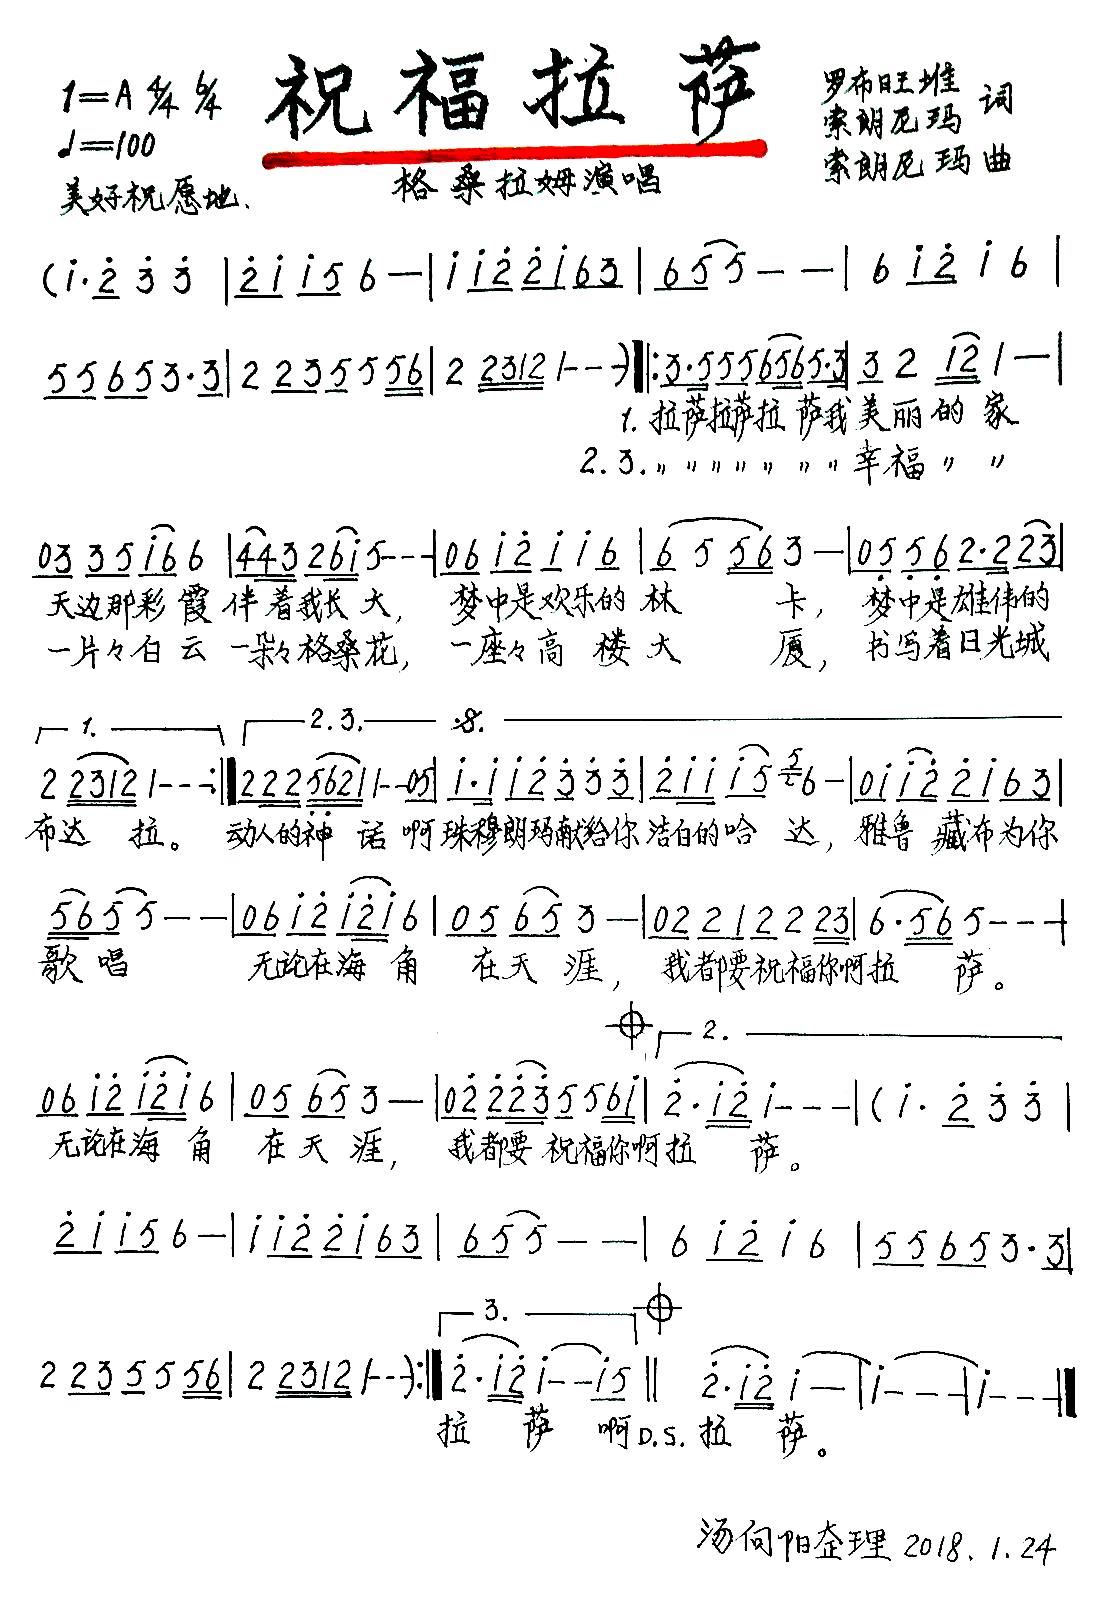 祝福拉萨
1=A 4/4 6/4
♩=100
美好祝愿地.
格桑拉姆演唱
罗布旺堆
索朗尼玛 词
索朗尼玛 曲
(i·2 3 3 | 2i i5 6— | i i2 2i 63 | 65 5—— | 6 i2 i 6 |
55653·3 | 2 2355 56 | 2 2312 1——) ‖: 3·5 55 565 5·3 | 3 2 12 1— |
1. 拉萨拉萨拉 萨我美丽的家
2.3. 〃〃〃〃〃〃〃幸福〃〃
03 35 i6 6 | 443 26i 5——— | 06 i2 i i6 | 6 5 56 3— | 05 56 2·2 23 |
天边那彩霞伴着我长大, 梦中是欢乐的林 卡, 梦中是雄伟的
一片々白云 一朵々格桑花, 一座々高楼大 厦, 书写着日光城
1. 2.3. 𝄋
2 2312 1——— :‖ 222 5621 1——05 | i·i i2 33 3 | 2i i i5 6— | 0i i2 2i 63 |
布达 拉。 动人的神 话 啊珠穆朗玛献给你洁白的哈 达, 雅鲁 藏布为你
56 5 5—— | 06 i2 i2i 6 | 05 65 3— | 02 21 22 23 | 6·56 5——— |
歌唱 无论在海 角 在天涯, 我都要祝福你啊拉 萨。
2.
06 i2 i2i 6 | 05 65 3— | 02 223 55 6i | 2·i2 i——— | (i· 2 3 3 |
无论在海 角 在天涯, 我都要 祝福你啊拉 萨。
2i i5 6— | i i2 2i 63 | 65 5—— | 6 i2 i 6 | 55 65 3·3 |
3.
2 23 55 56 | 2 2312 1——) :‖ 2·i2 i——i5 ‖ 2·i2 i— | i——— | i——— ‖
拉 萨 啊D.S.拉 萨。
汤向阳整理 2018.1.24